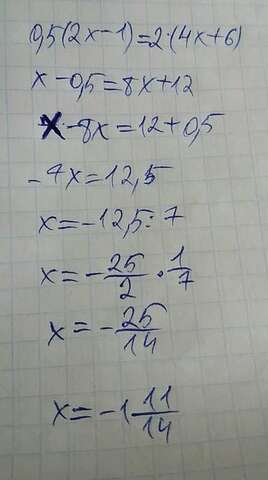 0,5(2x-1)=2·(4x+6)
x-0,5=8x+12
x-8x=12+0,5
-7x=12,5
x=-12,5:7
x=-25/2·1/7
x=-25/14
x=-1 11/14